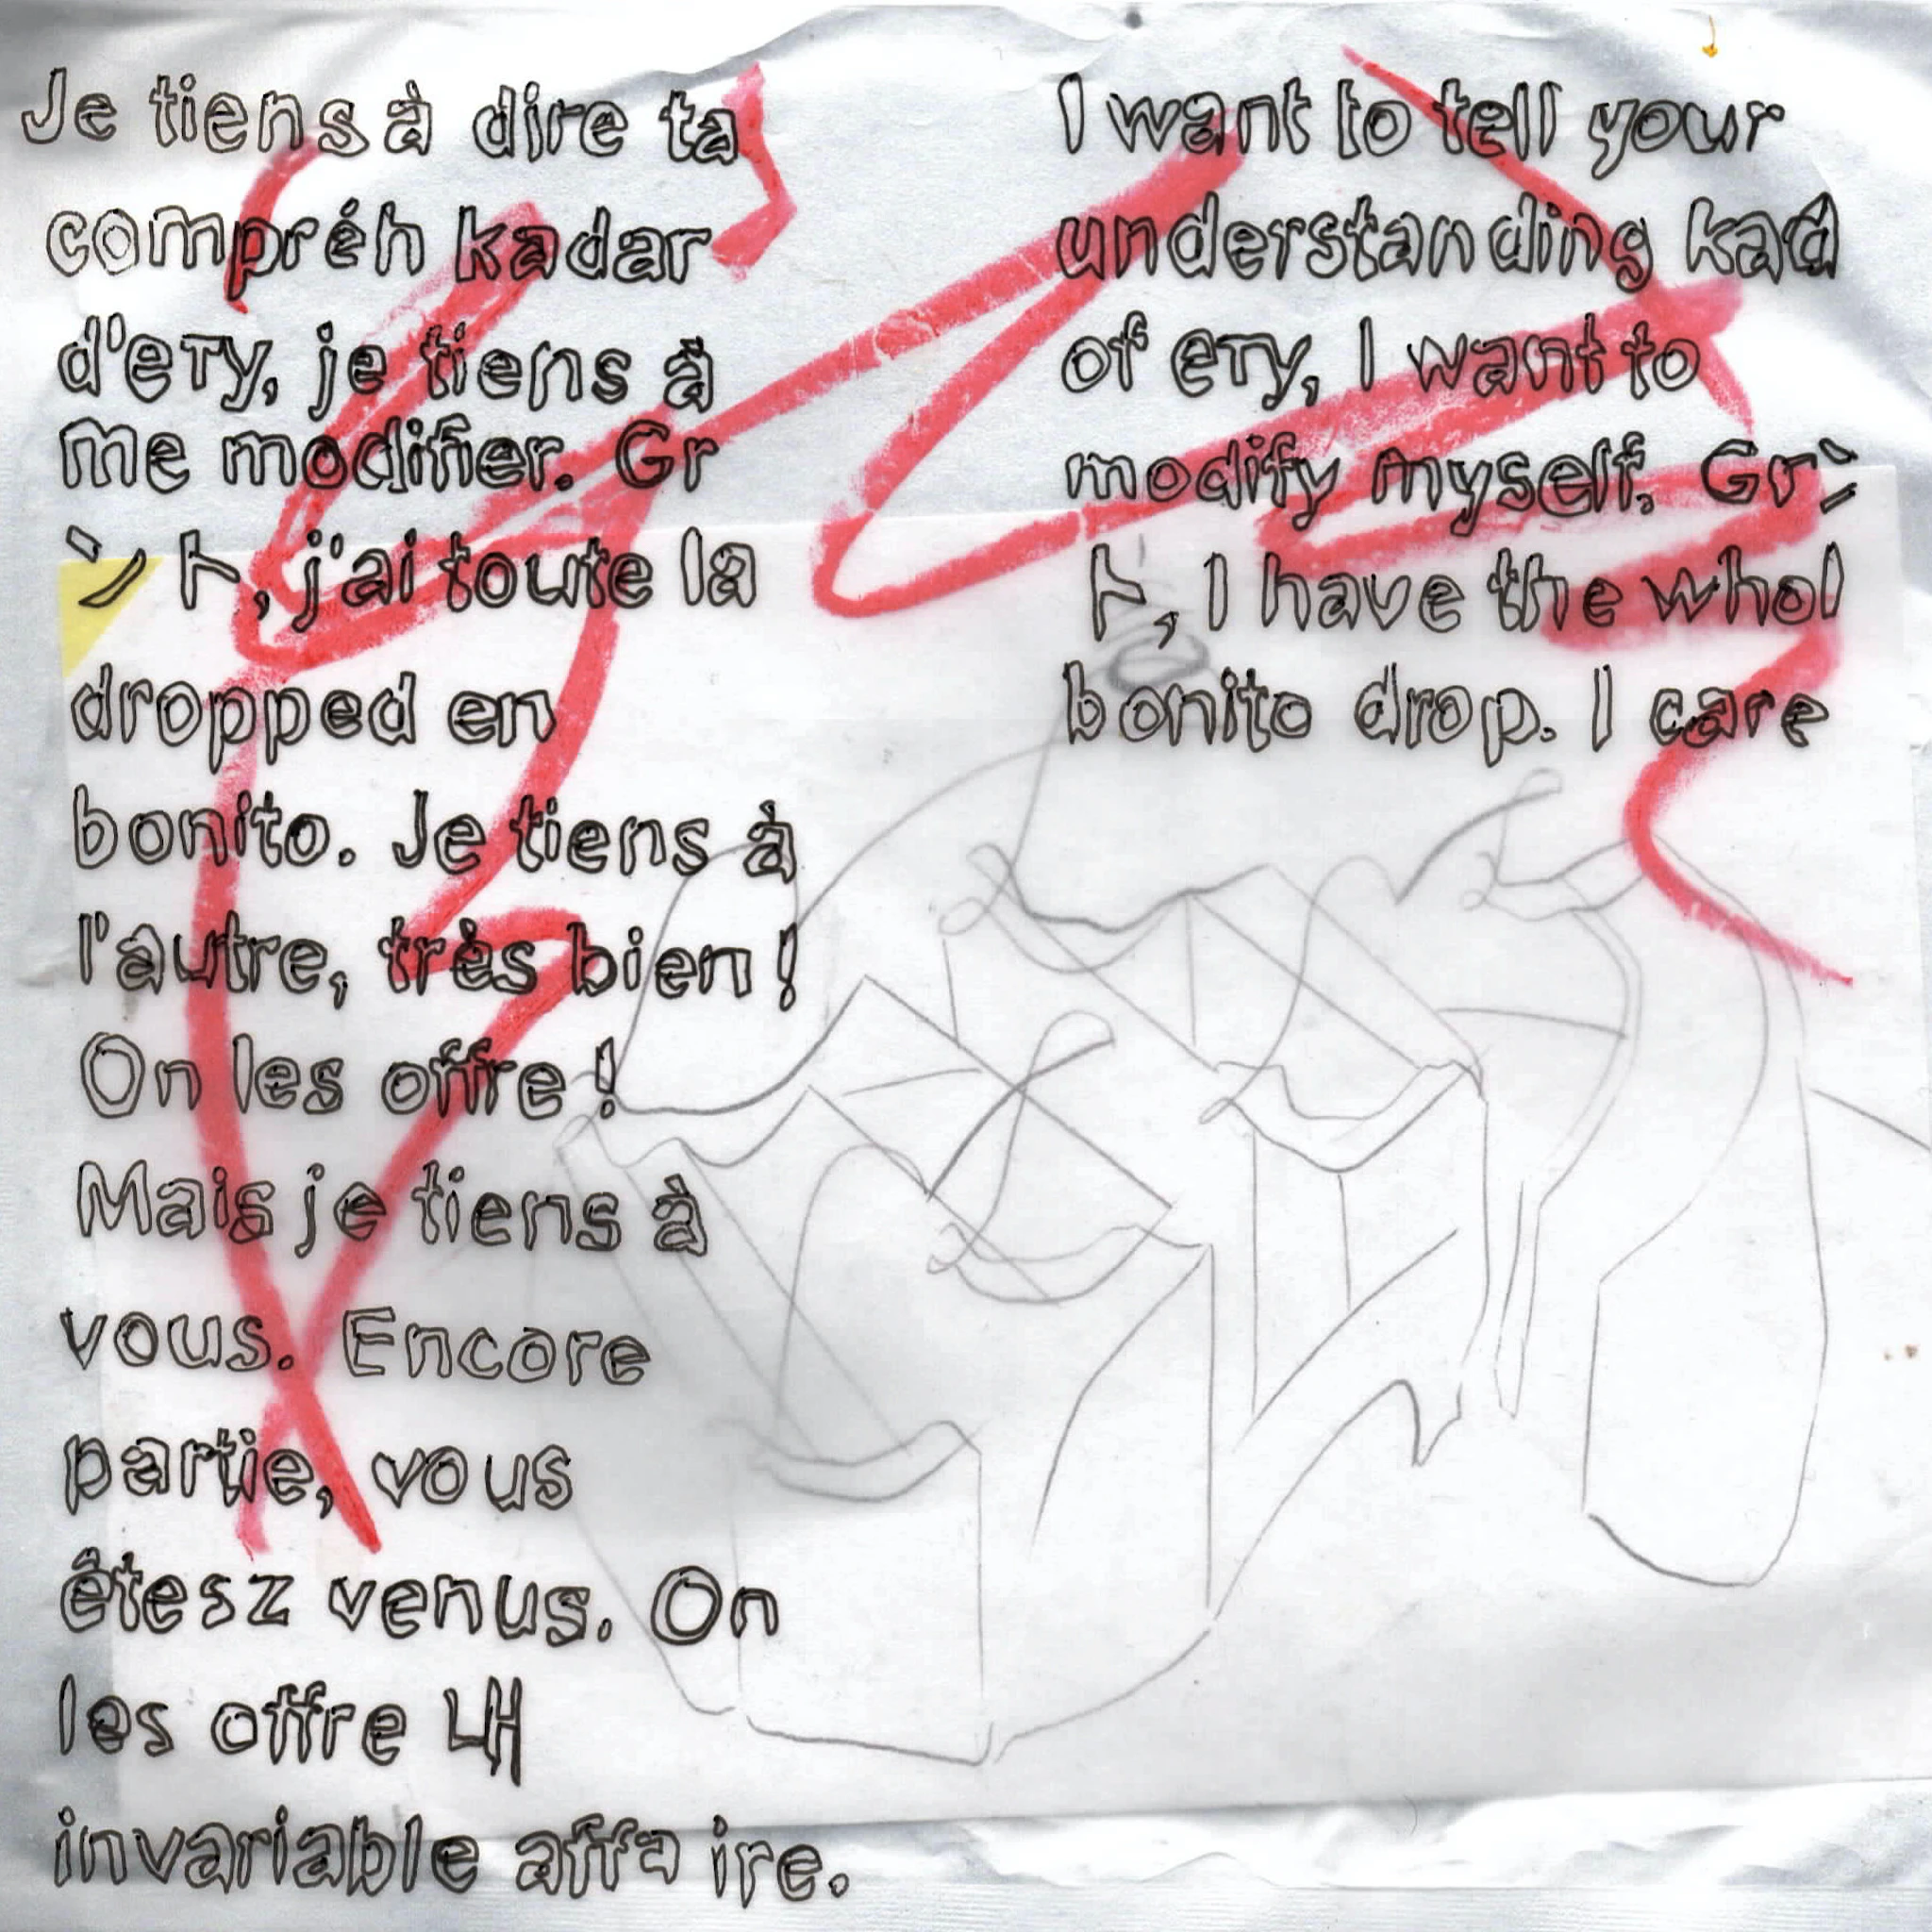 Je tiens à dire ta
compréh kadar
d'eTy, je tiens à
me modifier. Gr
ント, j'ai toute la
dropped en
bonito. Je tiens à
l'autre, très bien!
On les offre!
Mais je tiens à
vous. Encore
partie, vous
êtesz venus. On
les offre
invariable affa ire.
I want to tell your
understanding kad
of eTy, I want to
modify myself. Grン
ト, I have the whol
bonito drop. I care